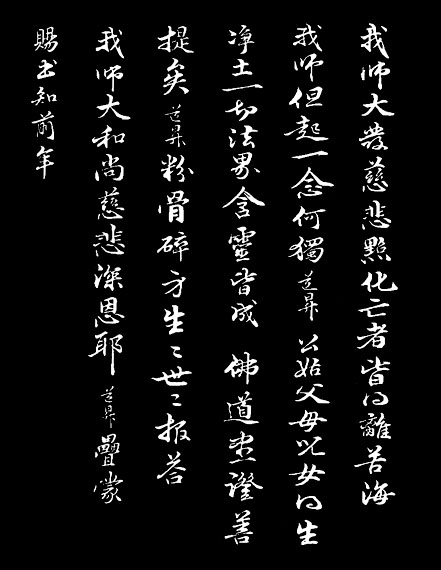 我師大發慈悲點化亡者皆得離苦海
我師但起一念何獨道昇公姑父母兒女得生
淨土一切法界含靈皆成 佛道盡證菩
提矣道昇粉骨碎身生〻世〻報荅
我師大和尚慈悲深恩耶道昇疊蒙
賜書知前年